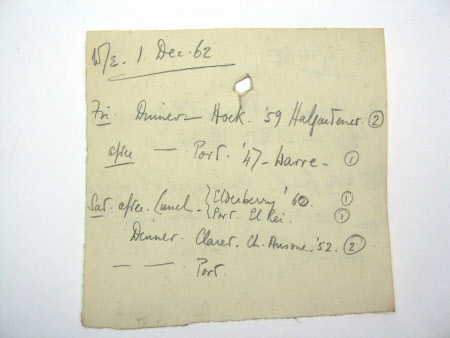 W/E. 1 Dec. 62
Fri Dinner - Hock. '59 Halgartener. 2
after — Port. '47 - Warre - 1
Sat. after. Lunch - { Elderberry '60 1
{ Port. El Rei. 1
Dinner. Claret. Ch. Ausone. '52. 2
— — Port.